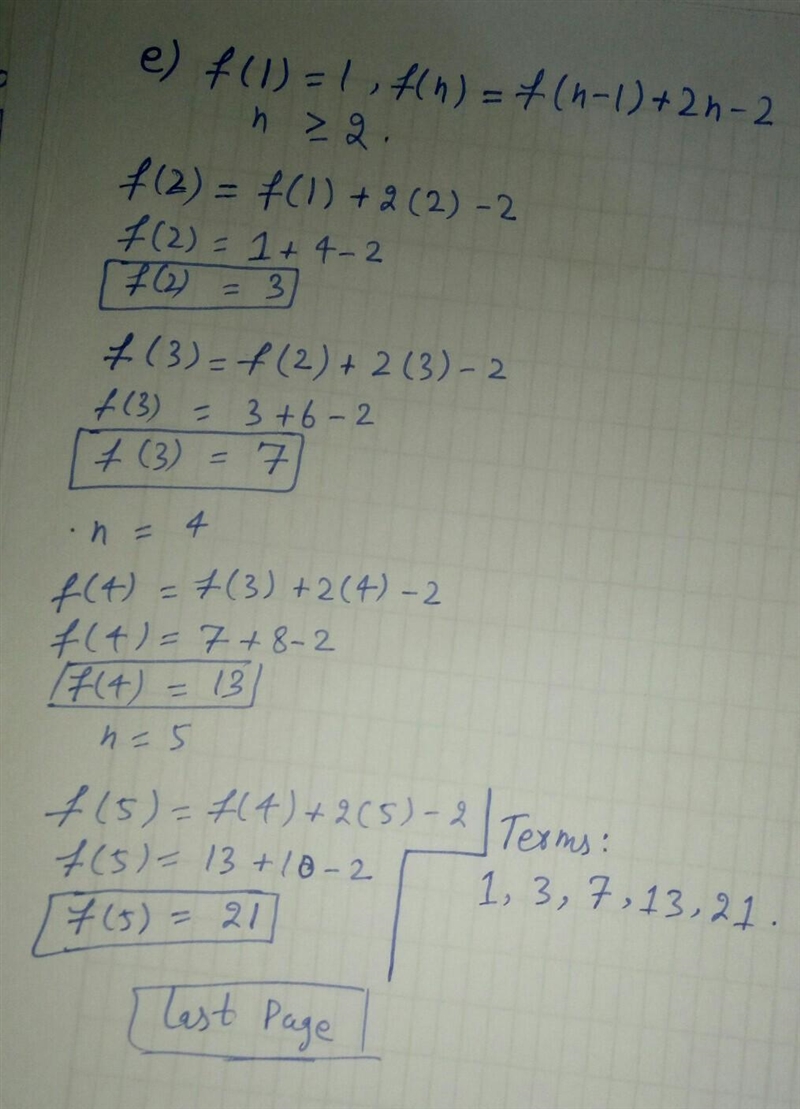 e) f(1) = 1, f(n) = f(n-1) + 2n - 2
n ≥ 2.
f(2) = f(1) + 2(2) - 2
f(2) = 1 + 4 - 2
f(2) = 3
f(3) = f(2) + 2(3) - 2
f(3) = 3 + 6 - 2
f(3) = 7
. n = 4
f(4) = f(3) + 2(4) - 2
f(4) = 7 + 8 - 2
f(4) = 13
n = 5
f(5) = f(4) + 2(5) - 2
f(5) = 13 + 10 - 2
f(5) = 21
Terms:
1, 3, 7, 13, 21.
last Page